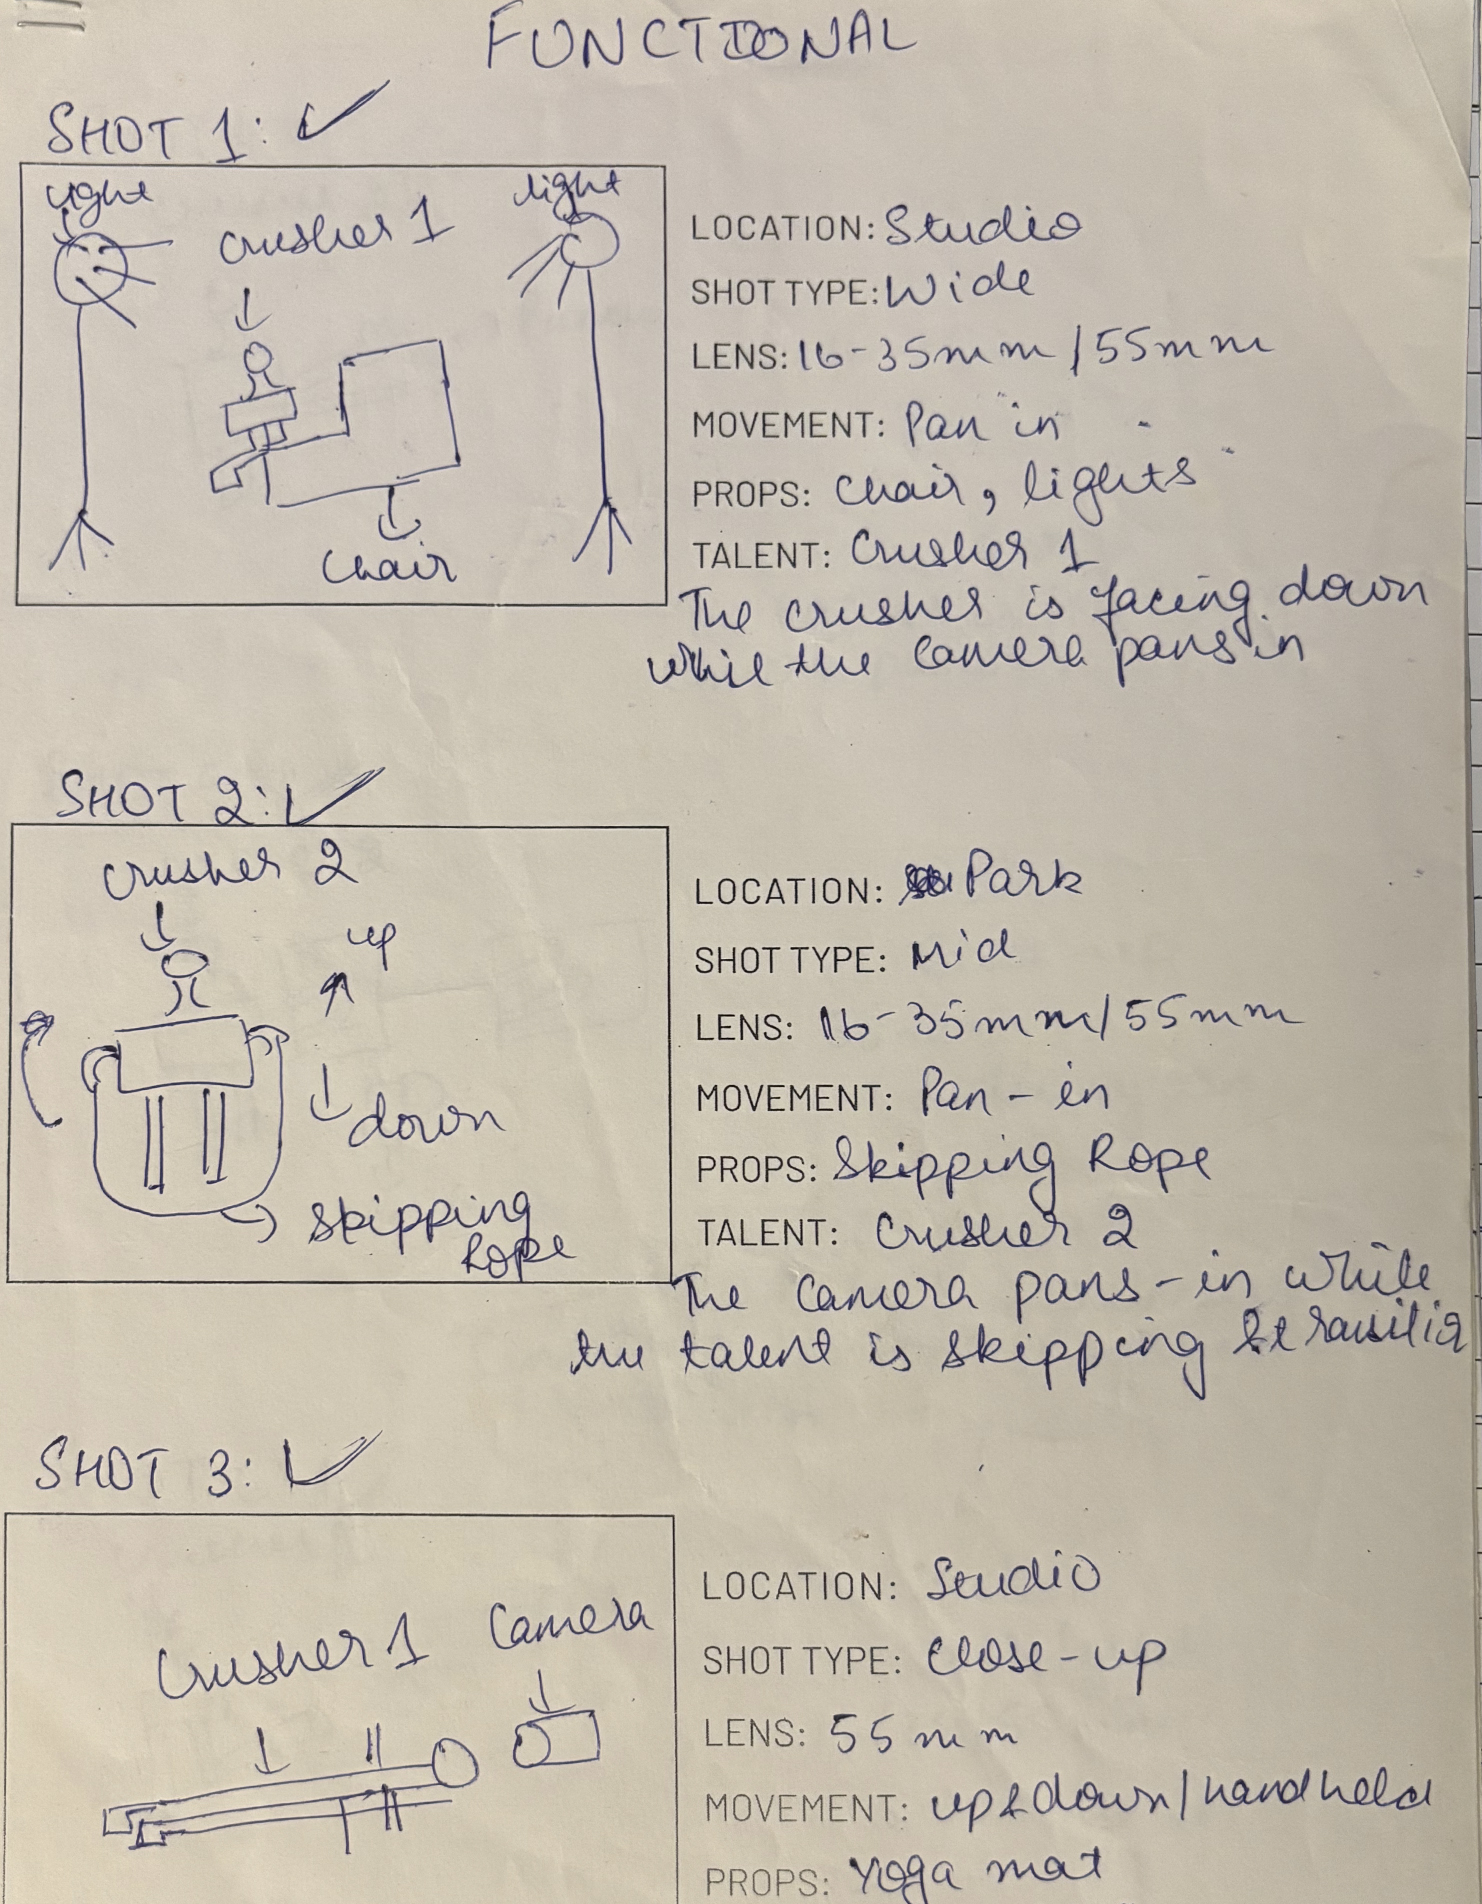 FUNCTIONAL
SHOT 1: ✓
light
light
crusher 1
chair
LOCATION: Studio
SHOT TYPE: Wide
LENS: 16-35mm/55mm
MOVEMENT: Pan in
PROPS: Chair, lights
TALENT: Crusher 1
The crusher is facing down
while the camera pans in
SHOT 2: ✓
crusher 2
up
down
skipping
Rope
LOCATION: Park
SHOT TYPE: Mid
LENS: 16-35mm/55mm
MOVEMENT: Pan-in
PROPS: Skipping Rope
TALENT: Crusher 2
The camera pans-in while
the talent is skipping
SHOT 3: ✓
Crusher 1
Camera
LOCATION: Studio
SHOT TYPE: Close-up
LENS: 55mm
MOVEMENT: up & down/handheld
PROPS: Yoga mat